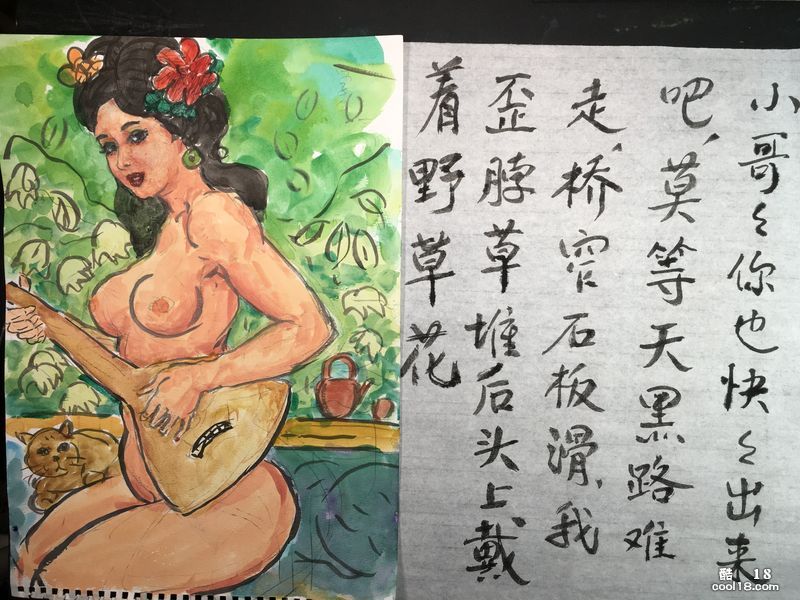 小哥々你也快々出来
吧、莫等天黑路难
走、桥窄石板滑、我
歪脖草堆后头上戴
着野草花
酷 18
cool18.com